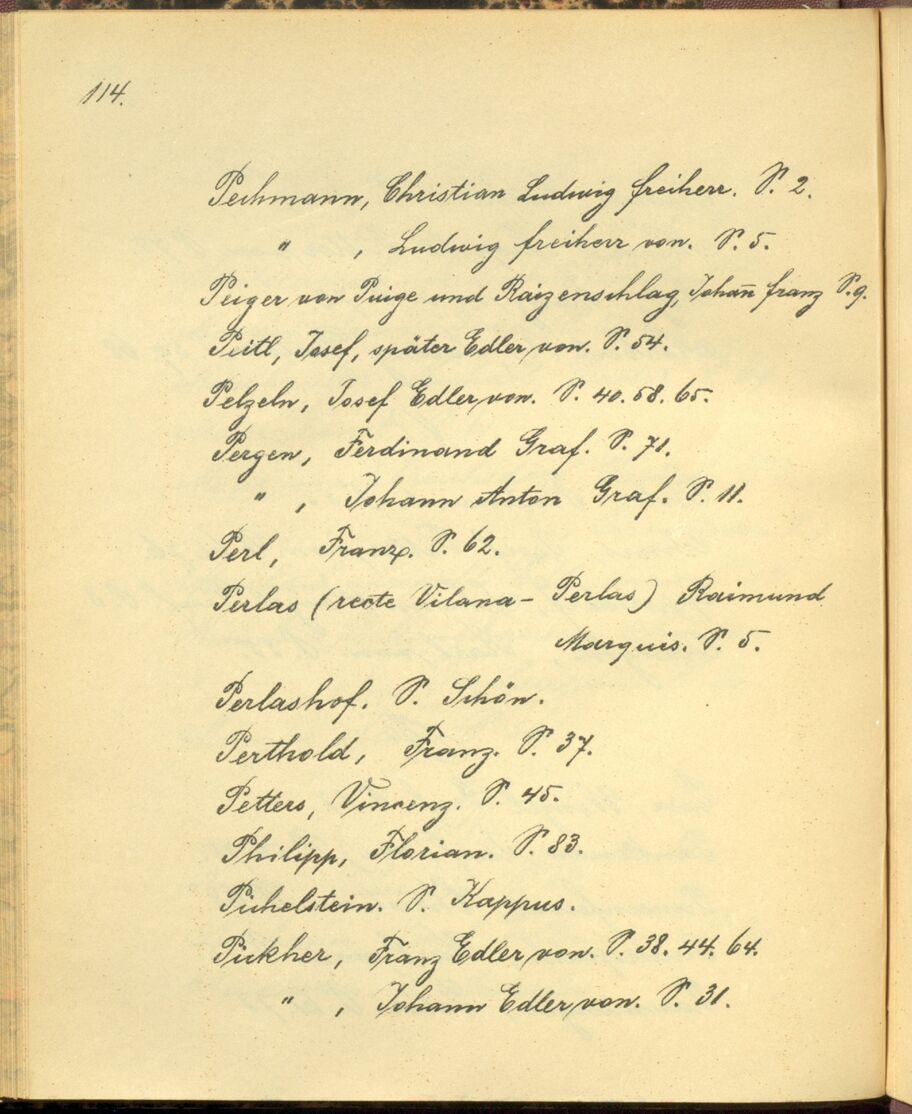 114.
Pechmann, Christian Ludwig freiherr. S. 2.
" , Ludwig freiherr von. S. 5.
Peiger von Puige und Raizenschlag, Johan̅n franz S. 9.
Peitl, Josef, später Edler von. S. 54.
Pelzeln, Josef Edler von. S. 40. 58. 65.
Pergen, Ferdinand Graf. S. 71.
" , Johann Anton Graf. S. 11.
Perl, Franz. S. 62.
Perlas (recte Vilana - Perlas) Raimund
Marquis. S. 5.
Perlashof. S. Schön.
Perthold, Franz. S. 37.
Petters, Vincenz. S. 45.
Philipp, Florian. S. 83.
Pichelstein. S. Kappus.
Pickher, Franz Edler von. S. 38. 44. 64.
" , Johann Edler von. S. 31.